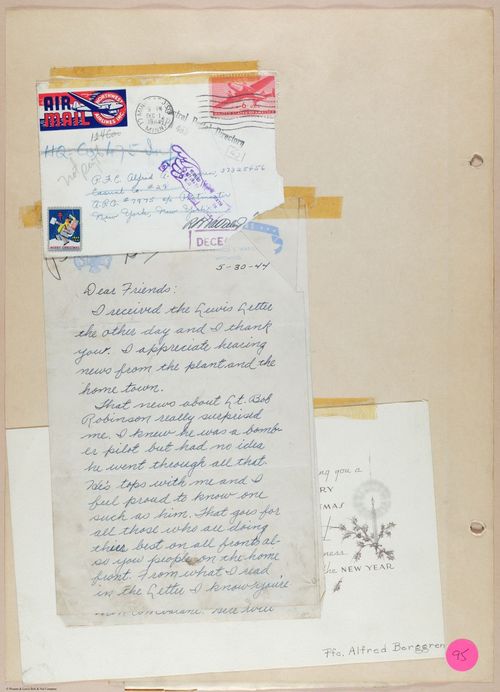 AIR MAIL
NORTHWEST AIRLINES INC.
MINN.
6¢
HQ. Co. 475
P.F.C. Alfred 37325656
Casual Co #29
A.P.O. #7775 c/o Postmaster
New York, New York
DEC
MERRY CHRISTMAS
5-30-44
Dear Friends:
I received the Lewis Letter
the other day and I thank
you. I appreciate hearing
news from the plant and the
home town.
That news about Lt. Bob
Robinson really surprised
me. I knew he was a bomb-
er pilot but had no idea
he went through all that.
He's tops with me and I
feel proud to know one
such as him. That goes for
all those who are doing
their best on all fronts al-
so you people on the home
front. From what I read
in the Letter I know you're
ng you a
RY
TMAS
ness
the NEW YEAR
Pfc. Alfred Borggren
95